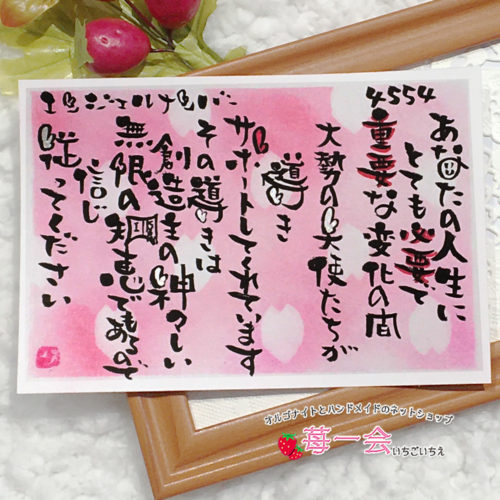 エンジェルナンバー
4554
あなたの人生に
とても必要で
重要な変化の間
大勢の天使たちが
導き
サポートしてくれています
その導きは
創造主の神々しい
無限の知恵であるので
信じ
従ってください
オルゴナイトとハンドメイドのネットショップ
苺一会いちごいちえ